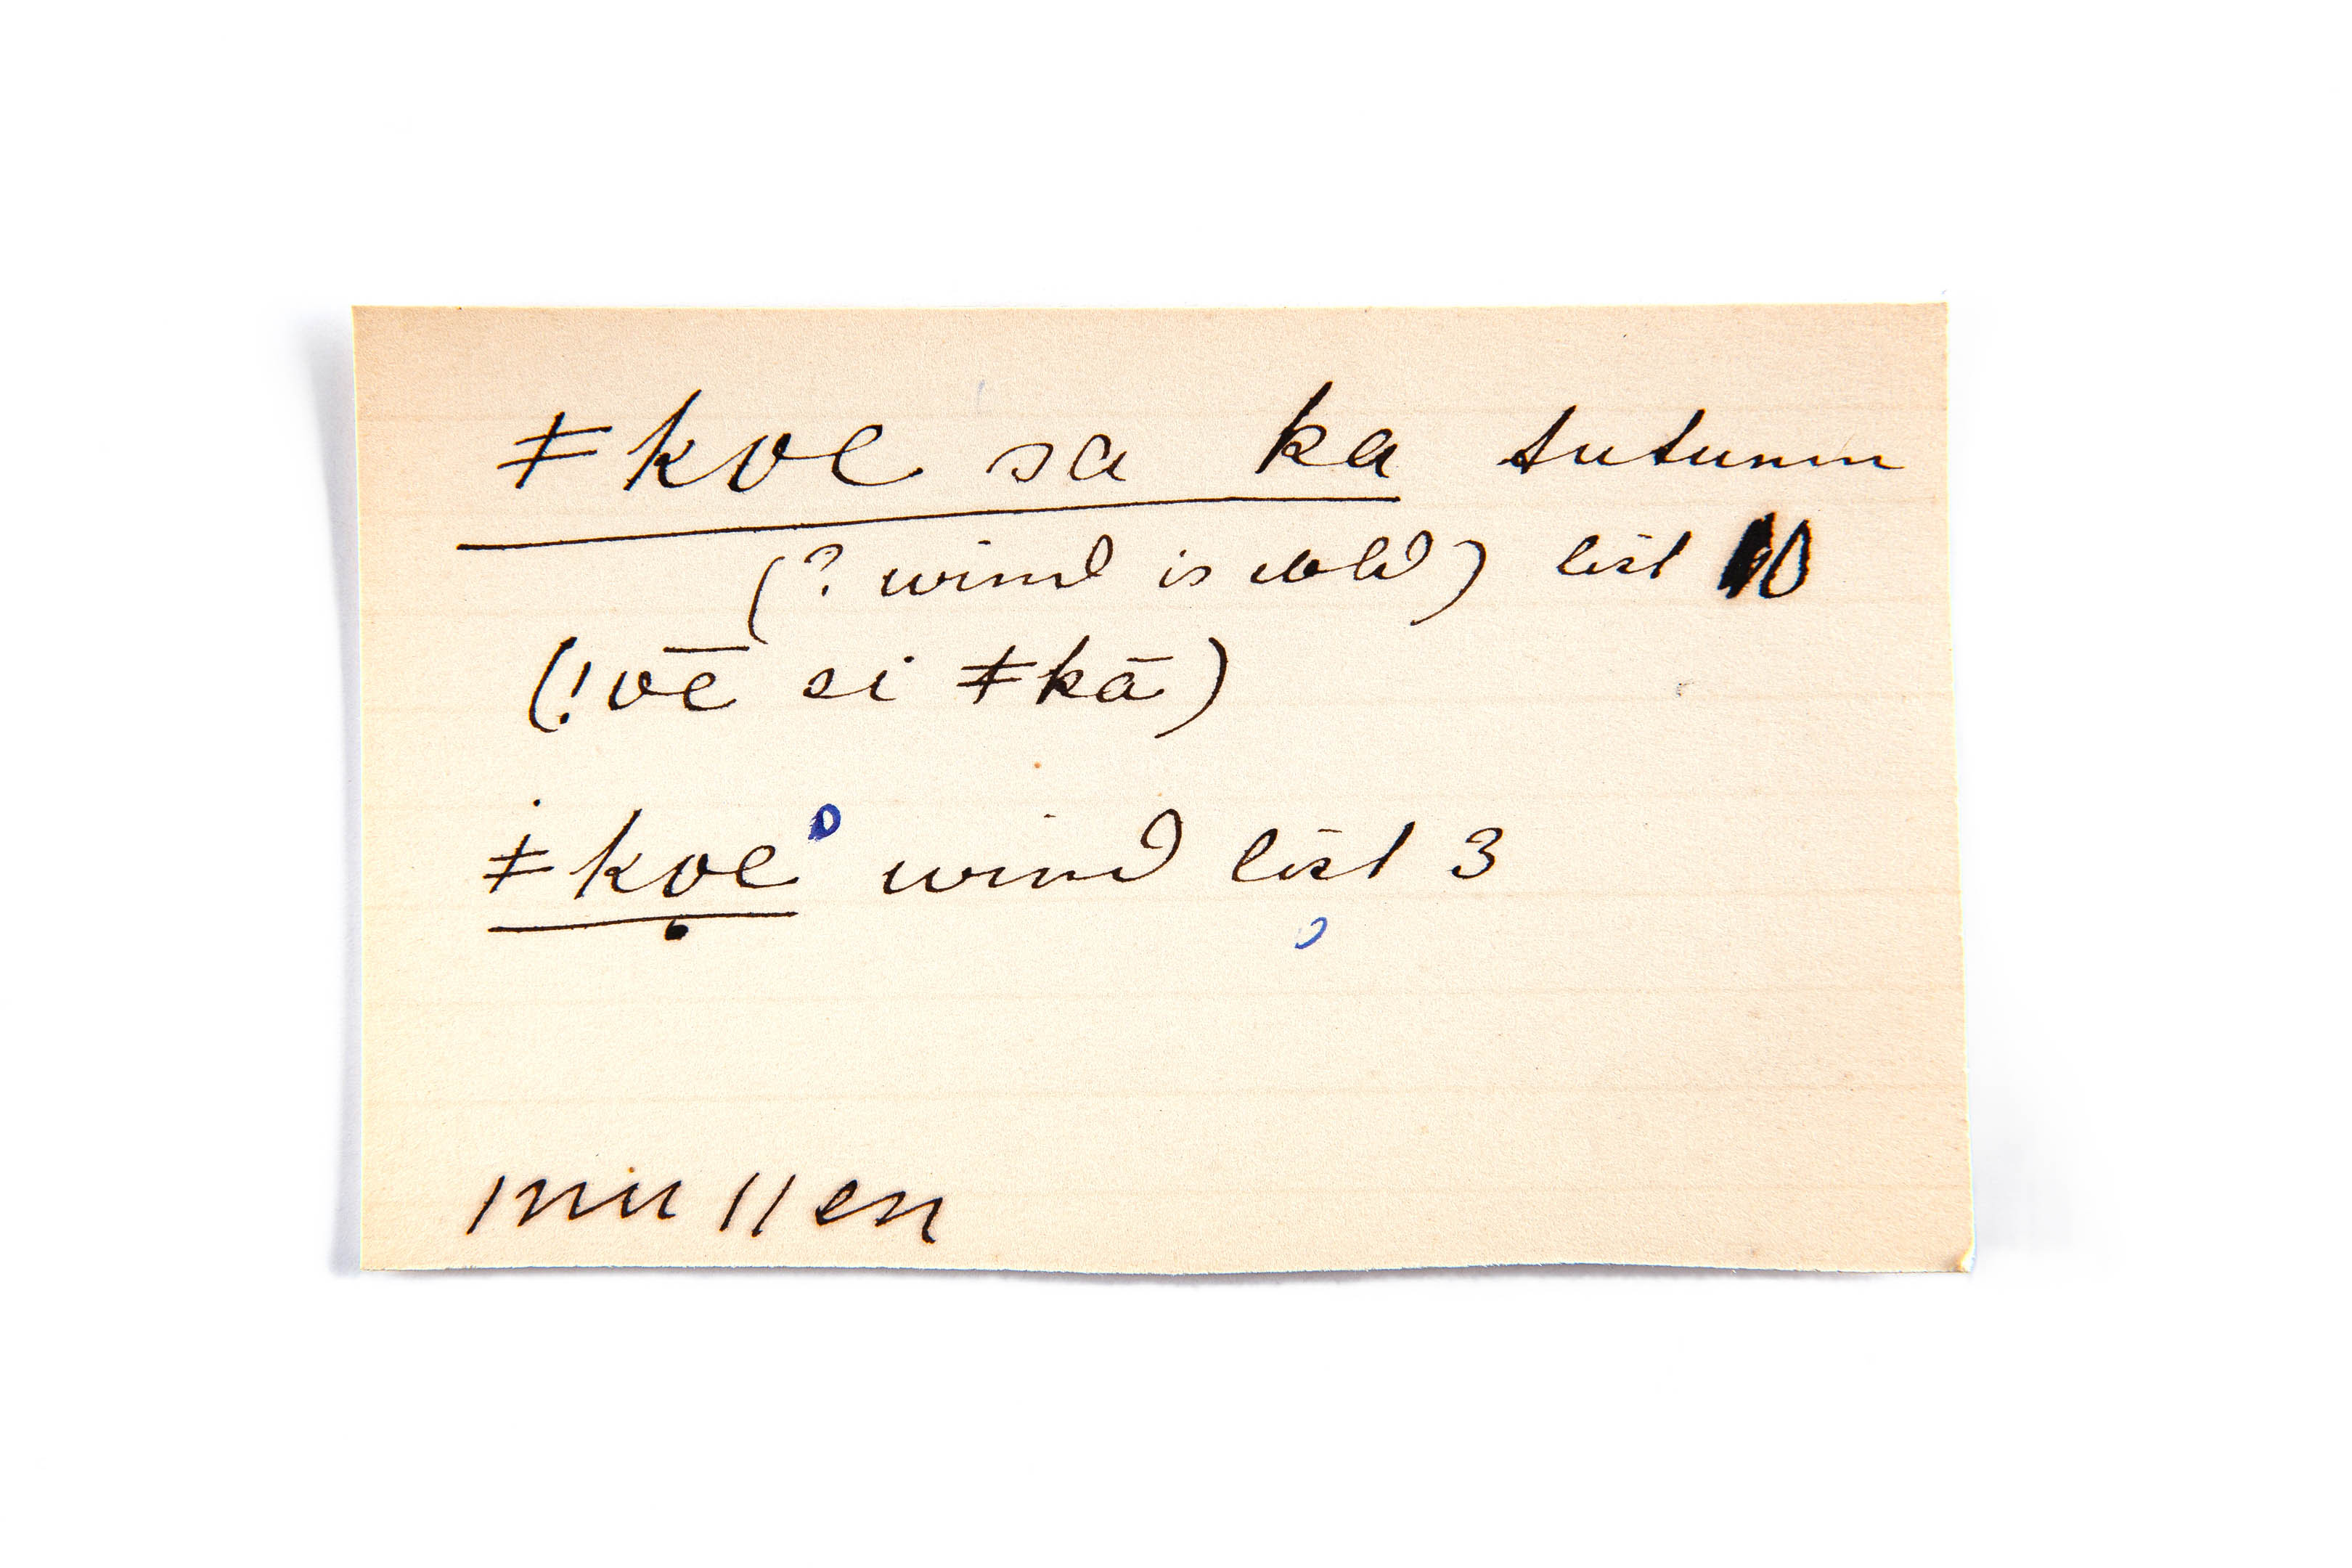 ǂkoe sa ka autumn
(? wind is cold) list 10
(!oē si ǂkā)
ǂkọe wind list 3
|nu ||en